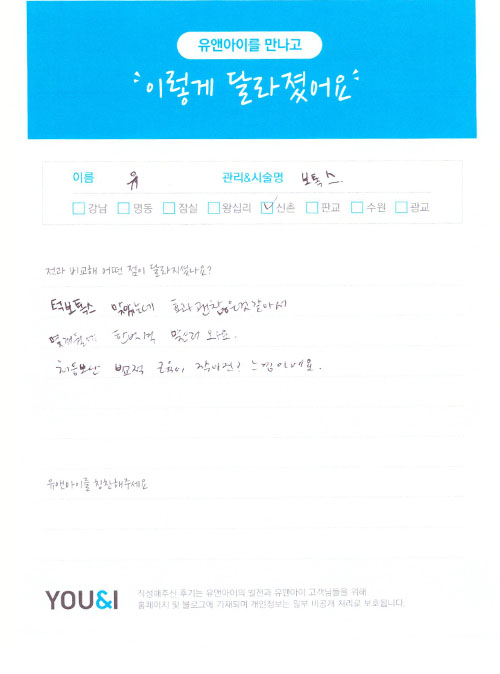 유앤아이를 만나고
이렇게 달라졌어요
이름 유 관리&시술명 보톡스.
강남 명동 잠실 왕십리 신촌 판교 수원 광교
전과 비교해 어떤 점이 달라지셨나요?
턱보톡스 맞았는데 효과 괜찮은것같아서
몇개월에 한번씩 맞으러 와요.
처음보단 근육이 작아진? 느낌이네요.
유앤아이를 칭찬해주세요
YOU&I
작성해주신 후기는 유앤아이의 발전과 유앤아이 고객님들을 위해
홈페이지 및 블로그에 기재되며 개인정보는 일부 비공개 처리로 보호됩니다.